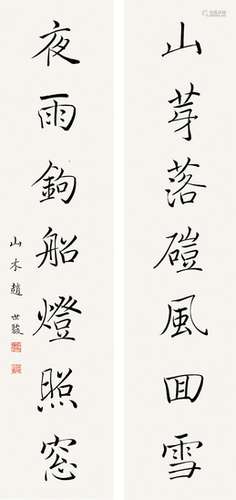 山芽落磑風回雪
夜雨鉤船燈照窓
山木趙世駿